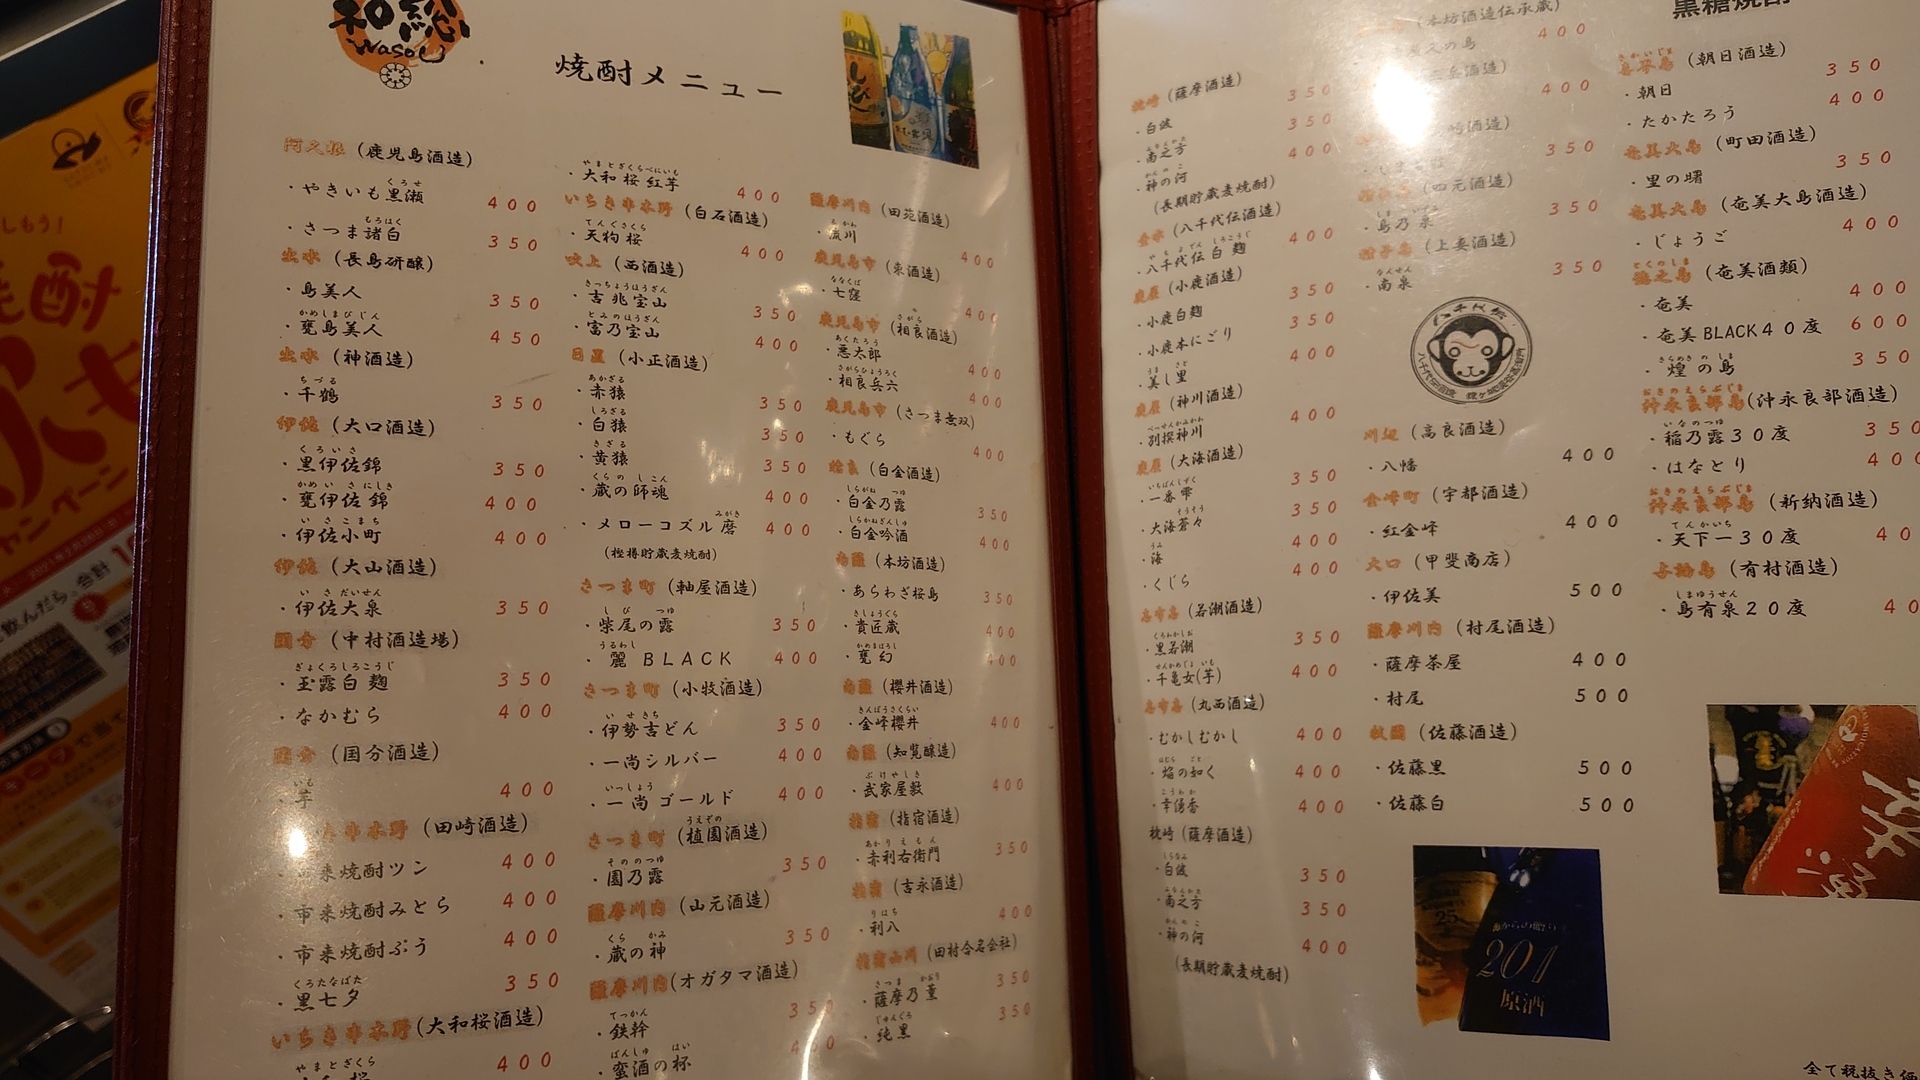 和総
Wasou
焼酎メニュー
阿久根 (鹿児島酒造)
・やきいも黒瀬 400
・さつま諸白 350
出水 (長島研醸)
・島美人 350
・甕島美人 450
出水 (神酒造)
・千鶴 350
伊佐 (大口酒造)
・黒伊佐錦 350
・甕伊佐錦 400
・伊佐小町 400
伊佐 (大山酒造)
・伊佐大泉 350
国分 (中村酒造場)
・玉露白麹 350
・なかむら 400
国分 (国分酒造)
・芋 400
(田崎酒造)
来焼酎ツン 400
・市来焼酎みとら 400
・市来焼酎ぶう 400
・黒七夕 350
いちき串木野 (大和桜酒造)
400
・大和桜 紅芋 400
いちき串木野 (白石酒造)
・天狗桜 400
吹上 (西酒造)
・吉兆宝山 350
・富乃宝山 400
日置 (小正酒造)
・赤猿 350
・白猿 350
・黄猿 350
・蔵の師魂 400
・メローコズル 磨 400
(樫樽貯蔵麦焼酎)
さつま町 (軸屋酒造)
・紫尾の露 350
・麗 BLACK 400
さつま町 (小牧酒造)
・伊勢吉どん 350
・一尚シルバー 400
・一尚ゴールド 400
さつま町 (植園酒造)
・園乃露 350
薩摩川内 (山元酒造)
・蔵の神 350
薩摩川内 (オガタマ酒造)
・鉄幹 350
・蛮酒の杯
薩摩川内 (田苑酒造)
・流川 400
鹿児島市 (東酒造)
・七窪 400
鹿児島市 (相良酒造)
・悪太郎 400
・相良兵六 400
鹿児島市 (さつま無双)
・もぐら 400
姶良 (白金酒造)
・白金乃露 350
・白金吟酒 400
南薩 (本坊酒造)
・あらわざ桜島 350
・貴匠蔵 400
・甕幻 400
南薩 (櫻井酒造)
・金峰櫻井 400
南薩 (知覧醸造)
・武家屋敷 400
指宿 (指宿酒造)
・赤利右衛門 350
指宿 (吉永酒造)
・利八 400
指宿山川 (田村合名会社)
・薩摩乃薫 350
・純黒 350
枕崎 (薩摩酒造)
・白波 350
・南之方 350
・神の河 400
(長期貯蔵麦焼酎)
垂水 (八千代伝酒造)
・八千代伝白麹 400
鹿屋 (小鹿酒造)
・小鹿白麹 350
・小鹿本にごり 350
・美し里 400
鹿屋 (神川酒造)
・別撰神川 400
鹿屋 (大海酒造)
・一番雫 350
・大海蒼々 350
・海 400
・くじら 400
志布志 (若潮酒造)
・黒若潮 350
・千亀女(芋) 400
志布志 (丸西酒造)
・むかしむかし 400
・焔の如く 400
・幸湧香 400
枕崎 (薩摩酒造)
・白波 350
・南之方 350
・神の河 400
(長期貯蔵麦焼酎)
(本坊酒造伝承蔵)
久の島 400
400
350
(四元酒造)
・島乃泉 350
種子島 (上妻酒造)
・南泉 350
八千代伝
川辺 (高良酒造)
・八幡 400
金峰町 (宇都酒造)
・紅金峰 400
大口 (甲斐商店)
・伊佐美 500
薩摩川内 (村尾酒造)
・薩摩茶屋 400
・村尾 500
牧園 (佐藤酒造)
・佐藤黒 500
・佐藤白 500
201
原酒
黒糖焼酎
喜界島 (朝日酒造)
・朝日 350
・たかたろう 400
奄美大島 (町田酒造)
・里の曙 350
奄美大島 (奄美大島酒造)
・じょうご 400
徳之島 (奄美酒類)
・奄美 400
・奄美BLACK40度 600
・煌の島 350
沖永良部島 (沖永良部酒造)
・稲乃露30度 350
・はなとり 400
沖永良部島 (新納酒造)
・天下一30度 40
与論島 (有村酒造)
・島有泉20度 40
全て税抜き価